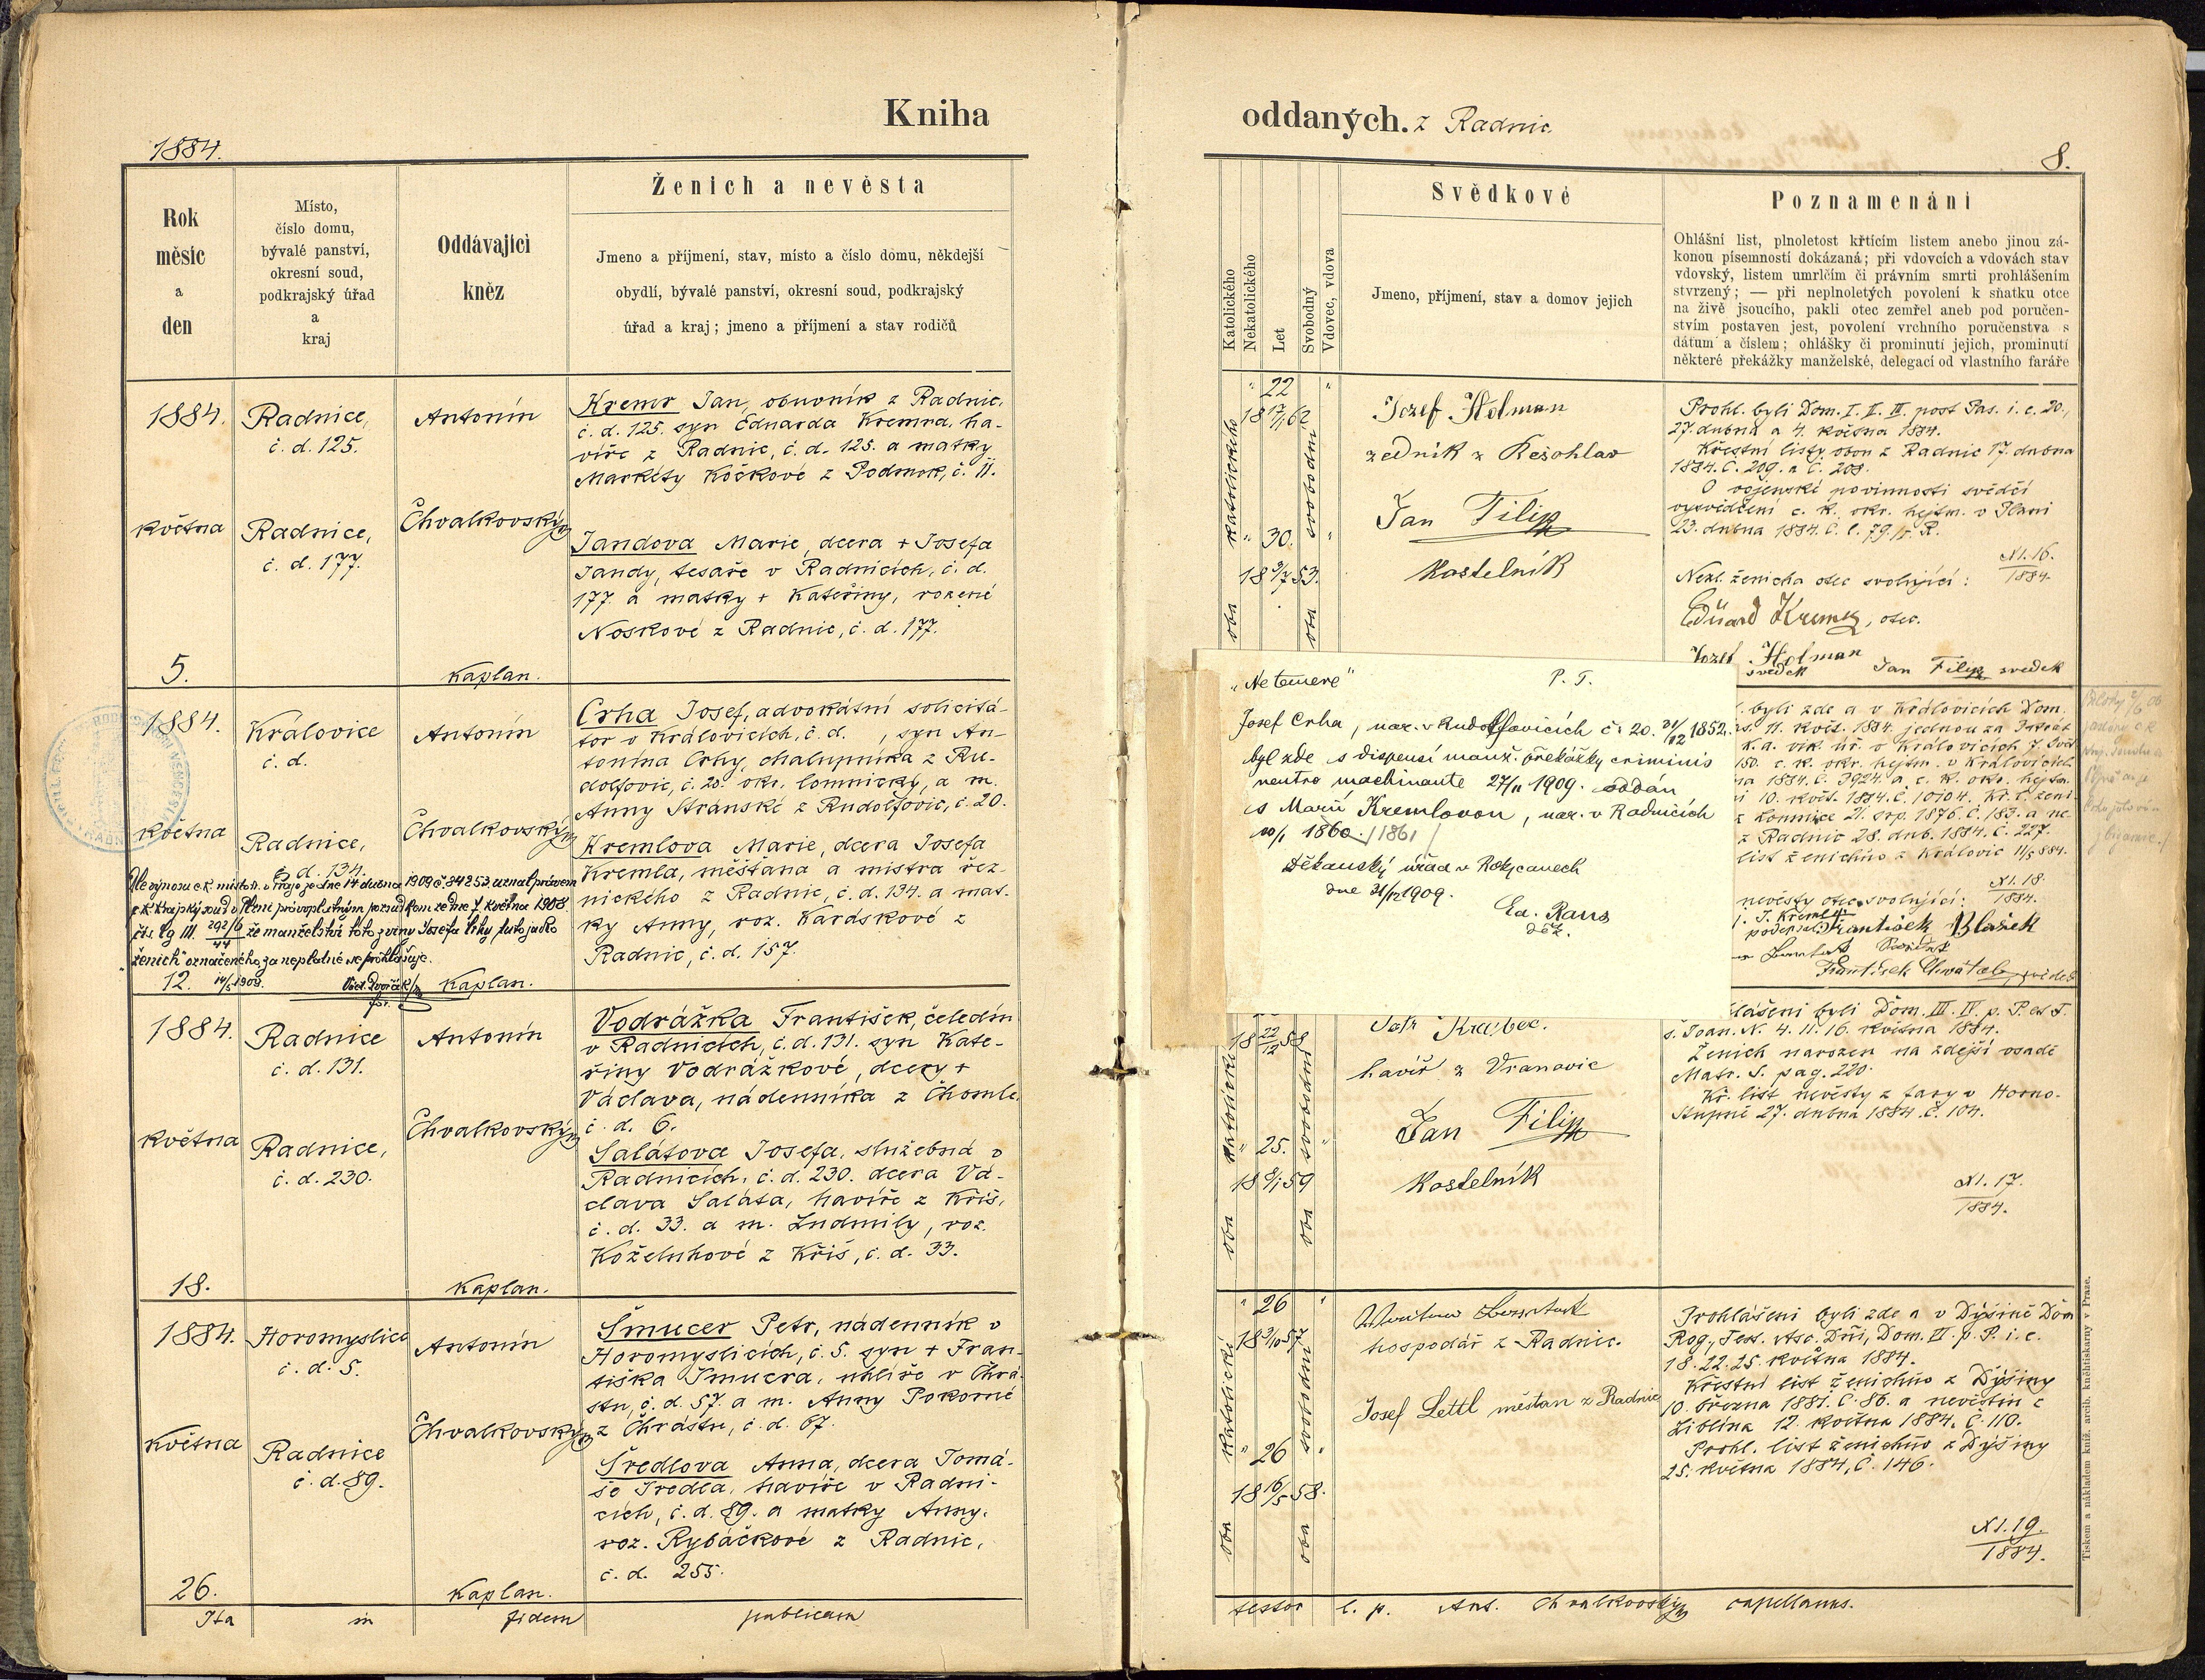 Kniha
1884.
Rok
měsíc
a
den
Místo,
číslo domu,
bývalé panství,
okresní soud,
podkrajský úřad
a
kraj
Oddávající
kněz
Ženich a nevěsta
Jmeno a příjmení, stav, místo a číslo domu, někdejší
obydlí, bývalé panství, okresní soud, podkrajský
úřad a kraj; jmeno a příjmení a stav rodičů
1884.
května
5.
Radnice,
č. d. 125.
Radnice,
č. d. 177.
Antonín
Chvalkovský
kaplan.
Kremr Jan, obuvník z Radnic,
č. d. 125. syn Eduarda Kremra, ha-
víře z Radnic, č. d. 125. a matky
Markéty Kočkové z Podmok, č. 11.
Jandova Marie, dcera + Josefa
Jandy, tesaře v Radnicích, č. d.
177. a matky + Kateřiny, rozené
Noskové z Radnic, č. d. 177.
1884.
května
12.
Královice
č. d.
Radnice,
č. d. 134.
Antonín
Chvalkovský
Kaplan.
Crha Josef, advokátní solicitá-
tor v Královicích, č. d. , syn An-
tonína Crhy, chalupníka z Ru-
dolfovic, č. 20. okr. lomnický, a m.
Anny Stránské z Rudolfovic, č. 20.
Kremlova Marie, dcera Josefa
Kremla, měšťana a mistra řez-
nického z Radnic, č. d. 134. a mat-
ky Anny, roz. Karáskové z
Radnic, č. d. 157.
Dle výnosu c. k. místodr. v Praze ze dne 14 dubna 1909 č. 84253. uznal právem
c. k. krajský soud v Plzni pravoplatným rozsudkem ze dne 7 května 1908.
čís. Cg III. 292/6 44 že manželství toto z viny Josefa Crhy tuto jako
"ženich" označeného, za neplatné se prohlašuje.
14/5 1909. Václ. Dvořák
1884.
května
18.
Radnice
č. d. 131.
Radnice,
č. d. 230.
Antonín
Chvalkovský
Kaplan.
Vodrážka František, čeledín
v Radnicích, č. d. 131. syn Kate-
řiny Vodrážkové, dcery +
Václava, nádenníka z Chomle
č. d. 6.
Salátova Josefa, služebná v
Radnicích, č. d. 230. dcera Vá-
clava Saláta, havíře z Kříš,
č. d. 33. a m. Ludmily, roz.
Koželuhové z Kříš, č. d. 33.
1884.
května
26.
Horomyslice
č. d. 5.
Radnice
č. d. 89.
Antonín
Chvalkovský
Kaplan.
Šmucer Petr, nádenník v
Horomyslicích, č. 5. syn + Fran-
tiška Šmucra, uhlíře v Chrá-
stu, č. d. 57. a m. Anny Pokorné
z Chrástu, č. d. 67.
Šredlova Anna, dcera Tomá-
še Šredla, havíře v Radni-
cích, č. d. 89. a matky Anny,
roz. Rybáčkové z Radnic,
č. d. 255.
Ita in fidem publicam
oddaných. z Radnic.
8.
Katolického
Nekatolického
Let
Svobodný
Vdovec, vdova
Svědkové
Jmeno, příjmení, stav a domov jejich
Poznamenání
Ohlášní list, plnoletost křtícím listem anebo jinou zá-
konou písemností dokázaná; při vdovcích a vdovách stav
vdovský, listem umrlčím či právním smrti prohlášením
stvrzený; — při neplnoletých povolení k sňatku otce
na živě jsoucího, pakli otec zemřel aneb pod poručen-
stvím postaven jest, povolení vrchního poručenstva s
dátum a číslem; ohlášky či prominutí jejich, prominutí
některé překážky manželské, delegací od vlastního faráře
oba katolického
22
18 17/1 62
30.
18 9/7 53.
oba svobodní
Jozef Holman
zedník z Něšohlav
Jan Filip
Kostelník
Prohl. byli Dom. I. II. III. post Pas. i. e. 20.,
27. dubna a 4. května 1884.
Křestní listy obou z Radnic 17. dubna
1884. č. 209. a č. 208.
O vojenské povinnosti svědčí
vysvědčení c. k. okr. hejtm. v Plzni
23. dubna 1884. č. l. 79. R.
N. 16.
1884.
Nezl. ženicha otec svolující:
Eduard Kremr, otec.
Jozef Holman
svědek
Jan Filip svědek
"Ne temere"
P. T.
Josef Crha, nar. v Rudolfovicích č. 20. 21/12 1852.
byl zde s dispensí manž. překážky criminis
neutro machinante 27/11 1909. oddán
s Marií Kremlovou, nar. v Radnicích
10/1 1860. /1861/
Děkanský úřad v Rokycanech
dne 31/12 1909.
Ed. Raus
děk.
byli zde a v Královicích Dom.
11. květ. 1884. jednou za třikrát
150. c. k. okr. hejtm. v Královicích
1884. č. 3924. a c. k. okr. hejtm.
10. květ. 1884. č. 10104. Kř. l. ženi-
z Lomnice 21. srp. 1876. č. 183. a ne.
z Radnic 28. dub. 1884. č. 227.
list ženichův z Královic 11/5 884.
N. 18.
1884.
nevěsty otec svolující:
J. Kreml
František Blažek
František Chvátal, svědek
oba katolické
18 22/12 58
25.
18 8/1 59
oba svobodní
Petr Krabec.
havíř z Vranovic
Jan Filip
Kostelník
hlášeni byli Dom. III. IV. p. P. et F.
s. Joan. N. 4. 11. 16. května 1884.
Ženich narozen na zdejší osadě
Matr. S. pag. 220.
Kř. list nevěsty z fary v Horno-
Stupně 27. dubna 1884. č. 104.
N. 17.
1884.
oba katolické
26
18 3/10 57
26
18 16/5 58.
oba svobodní
hospodář z Radnic.
Josef Lettl měštan z Radnic
Prohlášeni byli zde a v Dýšině Dom
Rog., Fest. Asc. Dñi, Dom. VI. p. P. i. e.
18. 22. 25. května 1884.
Křestní list ženichův z Dýšiny
10. března 1881. č. 86. a nevěstin z
Liblína 12. května 1884. č. 110.
Prohl. list ženichův z Dýšiny
25. května 1884, č. 146.
N. 19.
1884.
testor l. p. Ant. Chvalkovský capellanus.
Tiskem a nákladem kníž. arcib. kněhtiskárny v Praze.